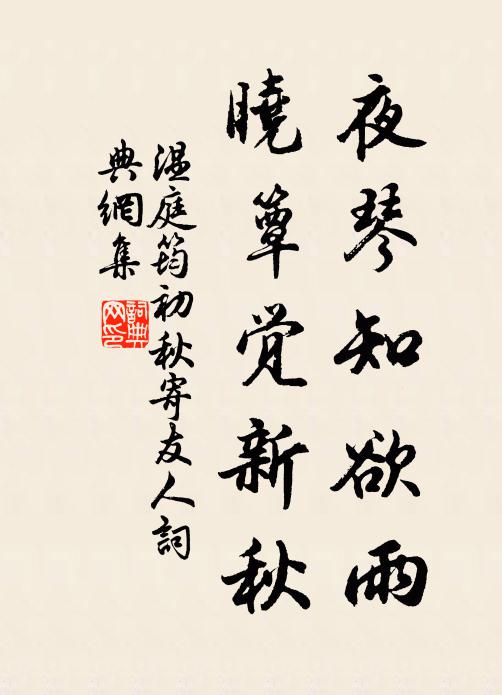 夜琴知欲雨
曉簟覚新秋
温庭筠初秋寄友人詞
典網集
詞典
网印